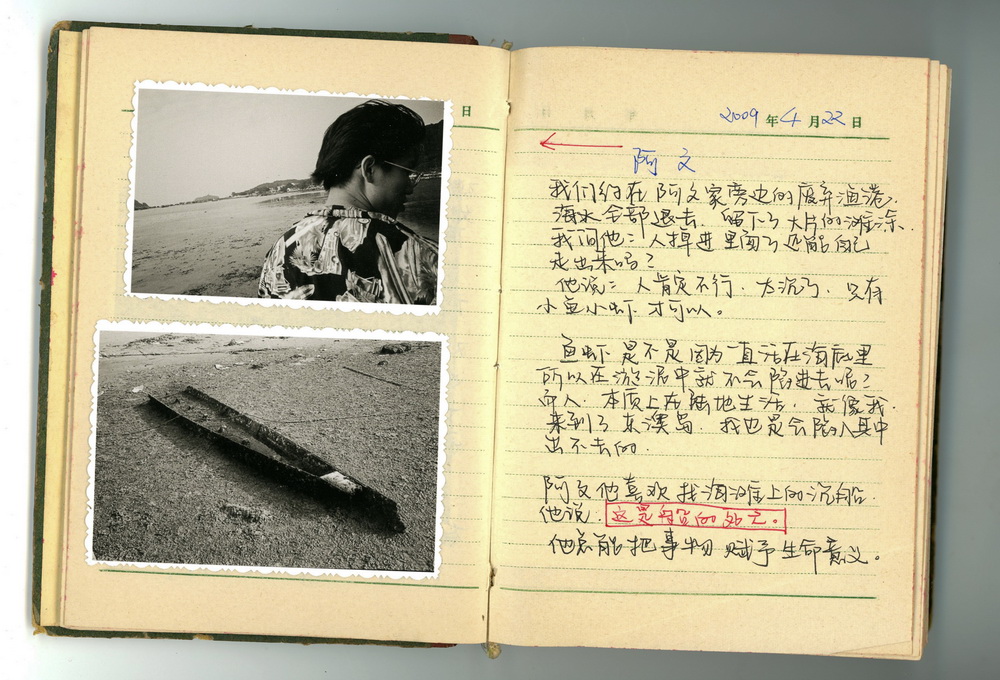 日
2009年4月22日
阿文
我们约在阿文家旁边的废弃渔港.
海水全部退去，留下了大片的滩涂.
我问他：人掉进里面了还能自己
走出来吗？
他说：人肯定不行，太沉了，只有
小鱼小虾才可以。
鱼虾是不是因为一直活在海底里
所以在淤泥中就不会陷进去呢？
而人.本质上在陆地生活.就像我.
来到了东澳岛，我也是会陷入其中
出不去的.
阿文他喜欢找海滩上的沉船.
他说.这是船的死亡。
他总能把事物赋予生命意义。